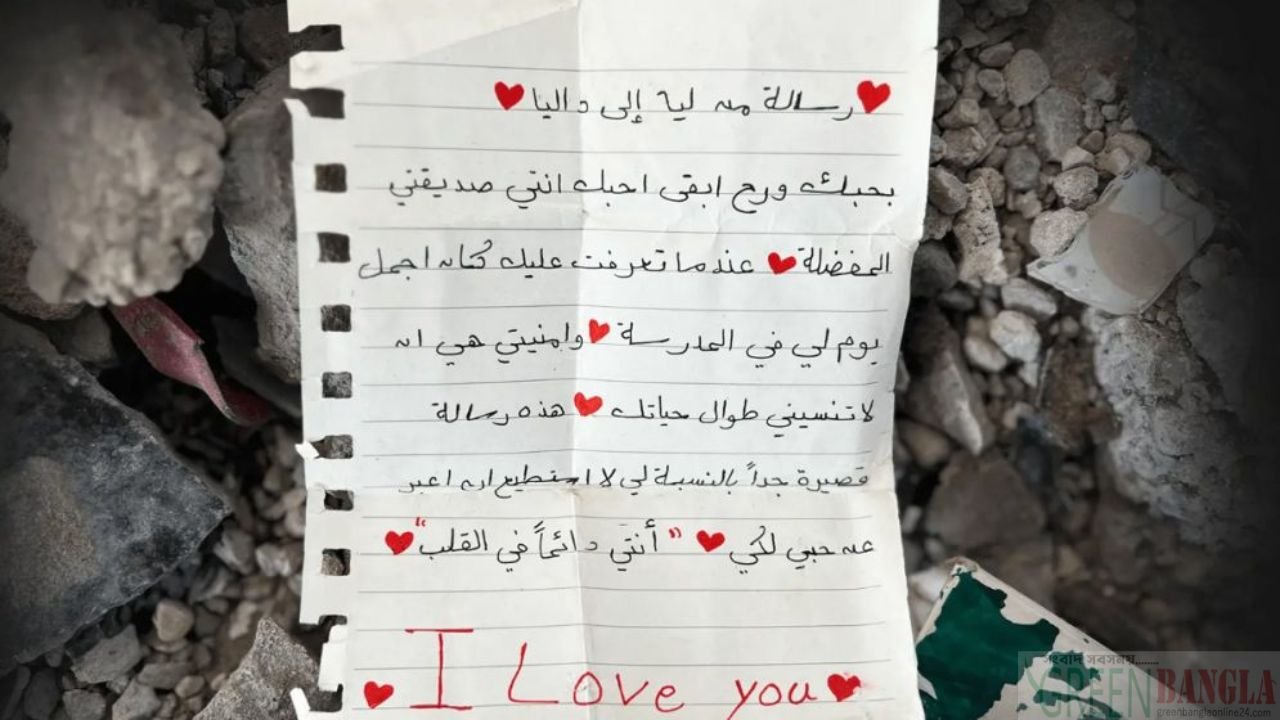 رسالة من ليا إلى داليا
بحبك ورح ابقى احبك انتي صديقتي
المفضلة عندما تعرفت عليك كان اجمل
يوم لي في المدرسة وامنيتي هي ان
لا تنسيني طوال حياتك هذه رسالة
قصيرة جداً بالنسبة لي لا استطيع ان اعبر
عن حبي لكي "أنتي دائماً في القلب"
I Love you
সংবাদ সবসময়........
GREENBANGLA
greenbanglaonline24.com